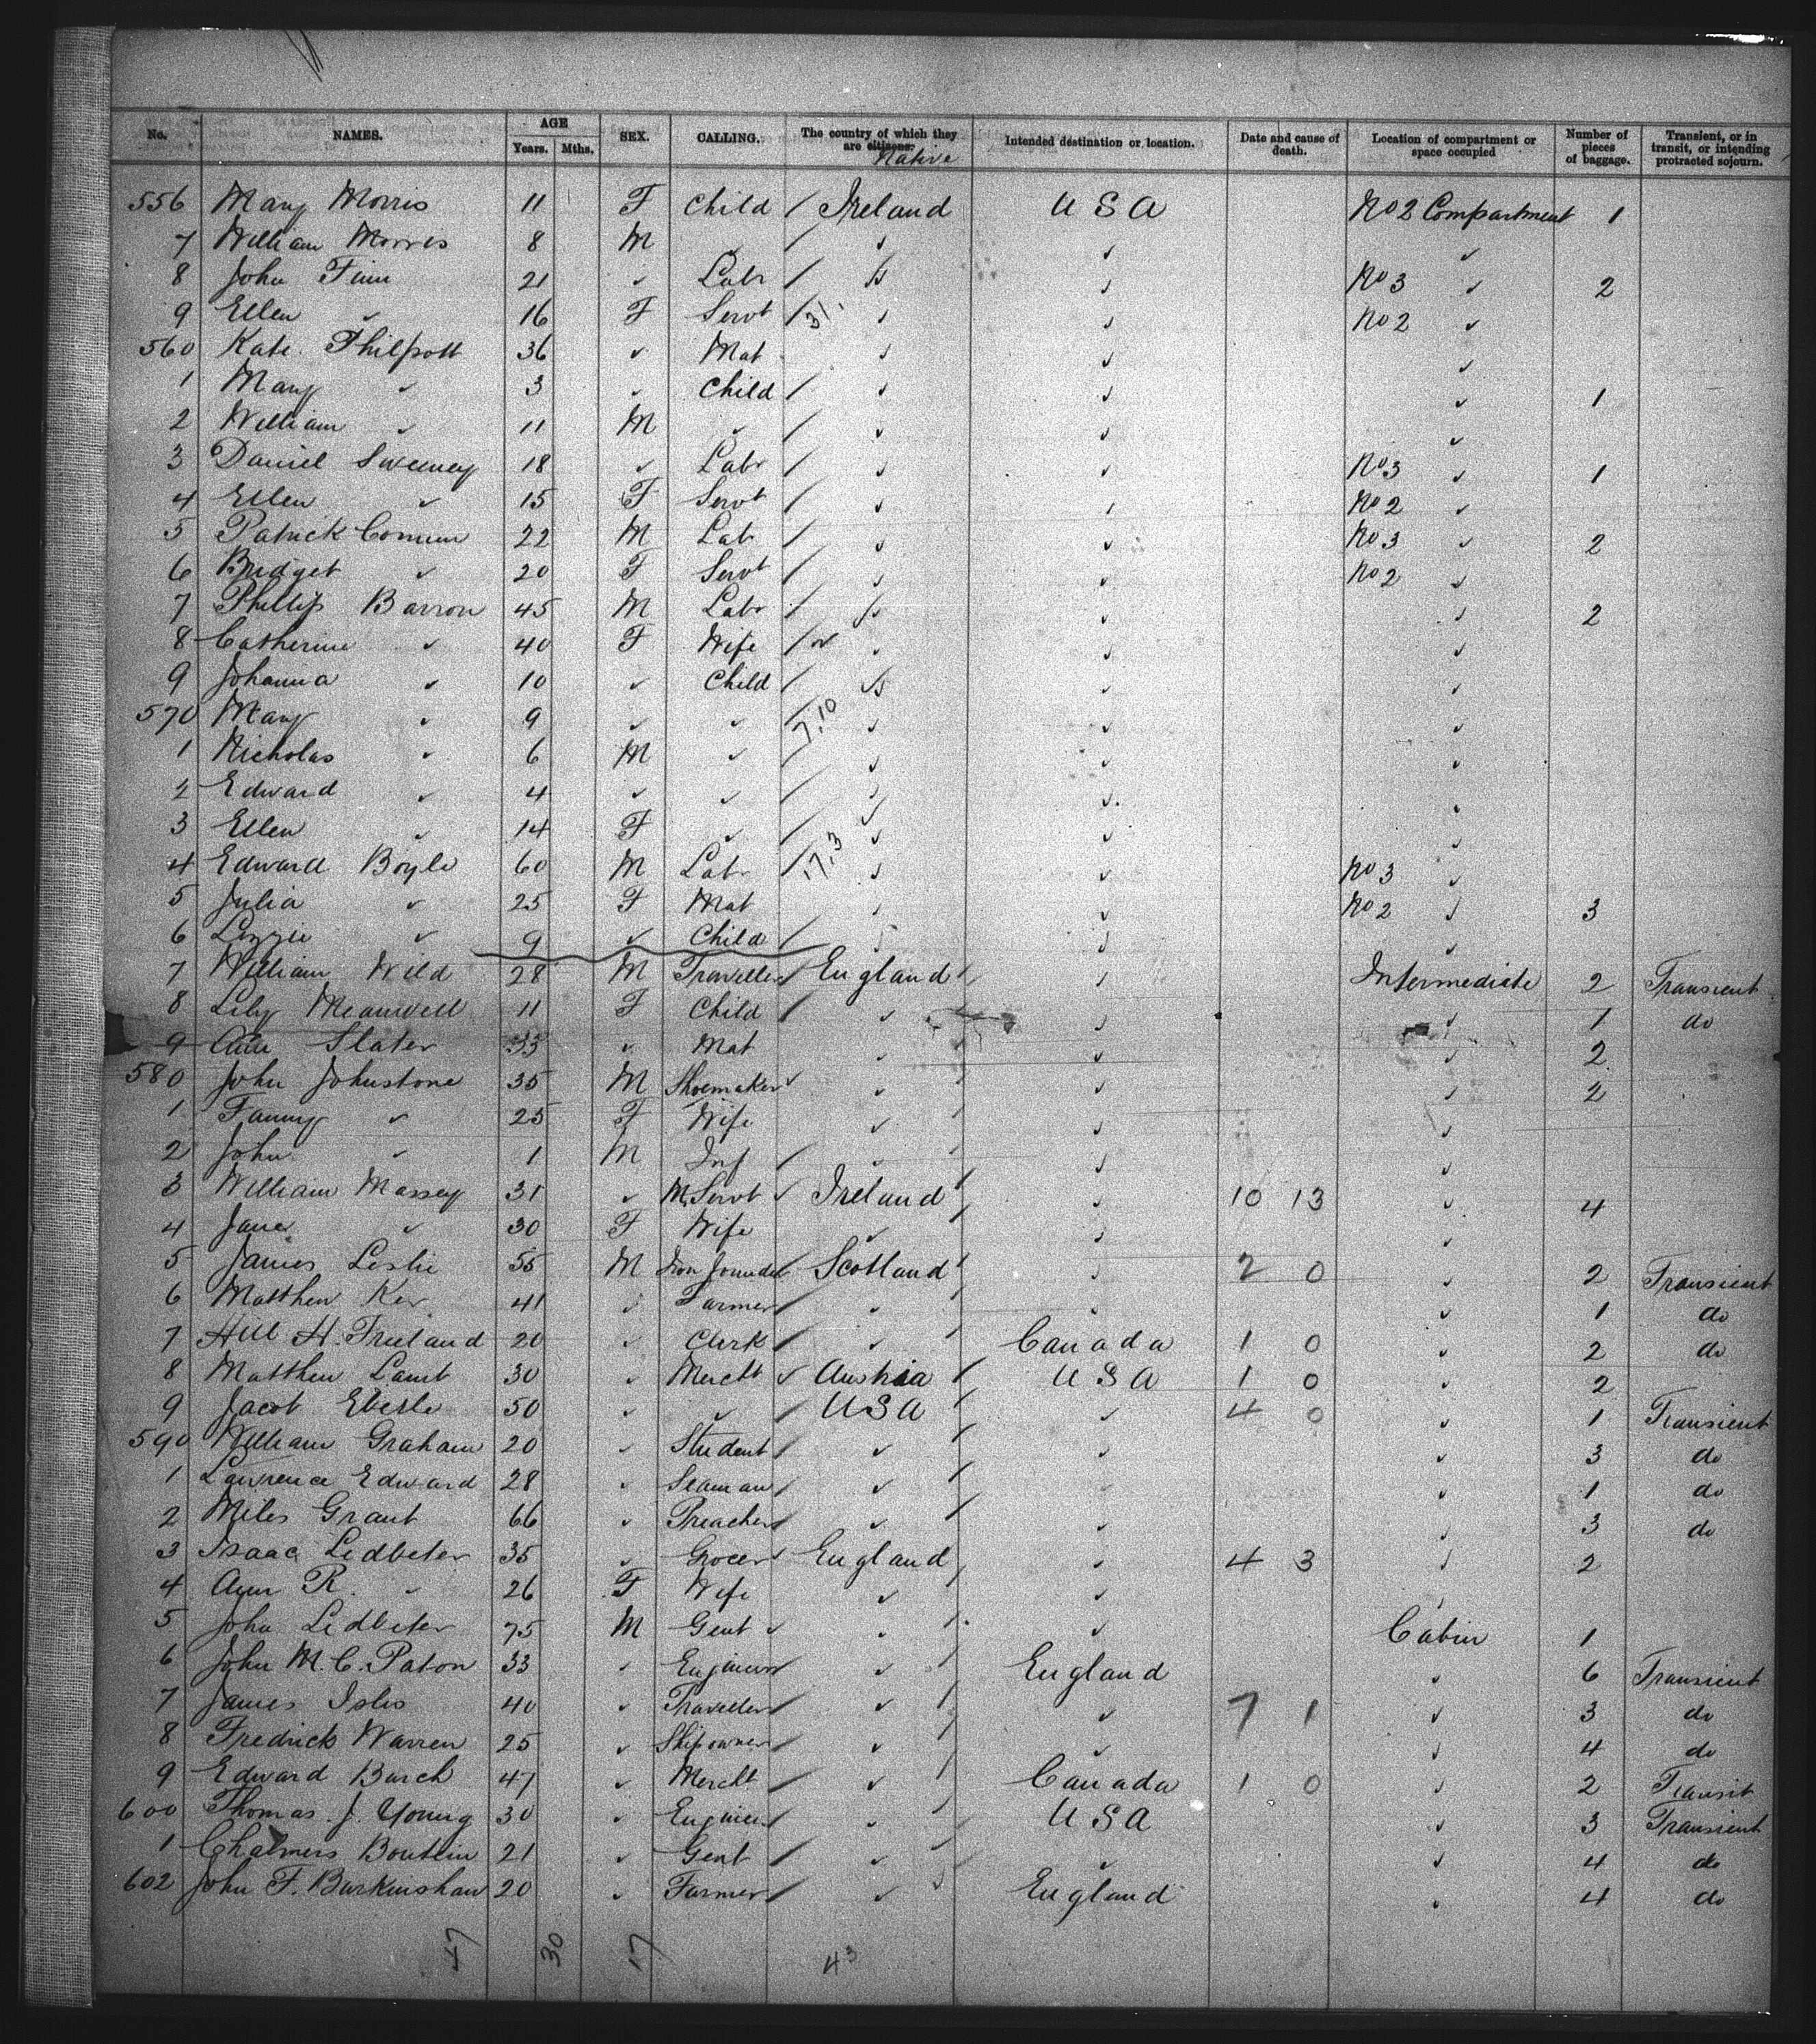 No. NAMES. AGE Years. Mths. SEX. CALLING. The country of which they are citizens. Native Intended destination or location. Date and cause of death. Location of compartment or space occupied Number of pieces of baggage. Transient, or in transit, or intending protracted sojourn.
556 Mary Morris 11 F Child / Ireland U S A No 2 Compartment 1
7 William Morris 8 M ✓ / ✓ ✓ ✓
8 John Finn 21 ✓ Labr / ✓ ✓ No 3 ✓ 2
9 Ellen ✓ 16 F Servt / 31 ✓ ✓ No 2 ✓
560 Kate Philpott 36 ✓ Mat ✓ ✓ ✓
1 Mary ✓ 3 ✓ Child / ✓ ✓ ✓ 1
2 William ✓ 11 M ✓ / ✓ ✓ ✓
3 Daniel Sweeney 18 ✓ Labr / ✓ ✓ No 3 ✓ 1
4 Ellen ✓ 15 F Servt / ✓ ✓ No 2 ✓
5 Patrick 22 M Labr / ✓ ✓ No 3 ✓ 2
6 Bridget ✓ 20 F Servt / ✓ ✓ No 2 ✓
7 Phillip Barron 45 M Labr / ✓ ✓ ✓ 2
8 Catherine ✓ 40 F Wife / ✓ ✓ ✓
9 Johanna ✓ 10 ✓ Child / ✓ ✓ ✓
570 Mary ✓ 9 ✓ ✓ / 7,10 ✓ ✓ ✓
1 Nicholas ✓ 6 M ✓ ✓ ✓ ✓
2 Edward ✓ 4 ✓ ✓ / ✓ ✓ ✓
3 Ellen ✓ 14 F ✓ / ✓ ✓ ✓
4 Edward Boyle 60 M Labr / 17,3 ✓ ✓ No 3 ✓
5 Julia ✓ 25 F Mat ✓ ✓ No 2 ✓ 3
6 Lizzie ✓ 9 ✓ Child / ✓ ✓ ✓
7 William Wild 28 M Traveller / England ✓ Intermediate 2 Transient
8 Lily Meanwell 11 F Child / ✓ ✓ ✓ 1 do
9 Ann Slater 33 ✓ Mat ✓ ✓ ✓ 2
580 John Johnstone 35 M Shoemaker ✓ ✓ ✓ ✓ 2
1 Fanny ✓ 25 F Wife ✓ ✓ ✓
2 John ✓ 1 M Inf / ✓ ✓ ✓
3 William Massey 31 ✓ M Servt ✓ Ireland ✓ 10 13 ✓ 4
4 Jane ✓ 30 F Wife ✓ ✓ ✓
5 James Leslie 55 M Iron founder / Scotland ✓ 2 0 ✓ 2 Transient
6 Matthew Ker 41 ✓ Farmer / ✓ ✓ ✓ 1 do
7 H. Freeland 20 ✓ Clerk / ✓ Canada 1 0 ✓ 2 do
8 Matthew Lamb 30 ✓ Mercht ✓ Austria U S A 1 0 ✓ 2
9 Jacob Eberle 50 ✓ ✓ / U S A ✓ 4 0 ✓ 1 Transient
590 William Graham 20 ✓ Student / ✓ ✓ ✓ 3 do
1 Lawrence Edward 28 ✓ Seaman / ✓ ✓ ✓ 1 do
2 Miles Grant 66 ✓ Preacher / ✓ ✓ ✓ 3 do
3 Isaac Ledbeter 35 ✓ Grocer ✓ England ✓ 4 3 ✓ 2
4 Ann R. ✓ 26 F Wife ✓ ✓ ✓
5 John Ledbeter 75 M Gent ✓ ✓ ✓ Cabin 1
6 John M. C. Paton 33 ✓ Engineer / ✓ England ✓ 6 Transient
7 James 40 ✓ Traveller / ✓ ✓ 7 1 ✓ 3 do
8 Fredrick Warren 25 ✓ Shipowner / ✓ ✓ ✓ 4 do
9 Edward Burch 47 ✓ Mercht / ✓ Canada 1 0 ✓ 2 Transit
600 Thomas J. Young 30 ✓ Engineer / ✓ U S A ✓ 3 Transient
1 Chalmers 21 ✓ Gent / ✓ ✓ ✓ 4 do
602 John F. Burkinshaw 20 ✓ Farmer / ✓ England ✓ 4 do
47 30 17 43